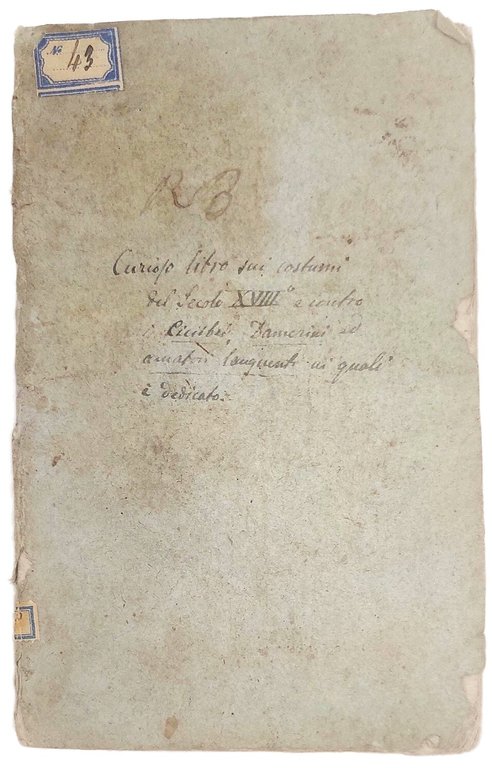 No 43
RB
Curioso libro sui costumi
del Secolo XVIIIº e contro
i Cicisbei Damerini ed
amatori languenti ai quali
è dedicato.